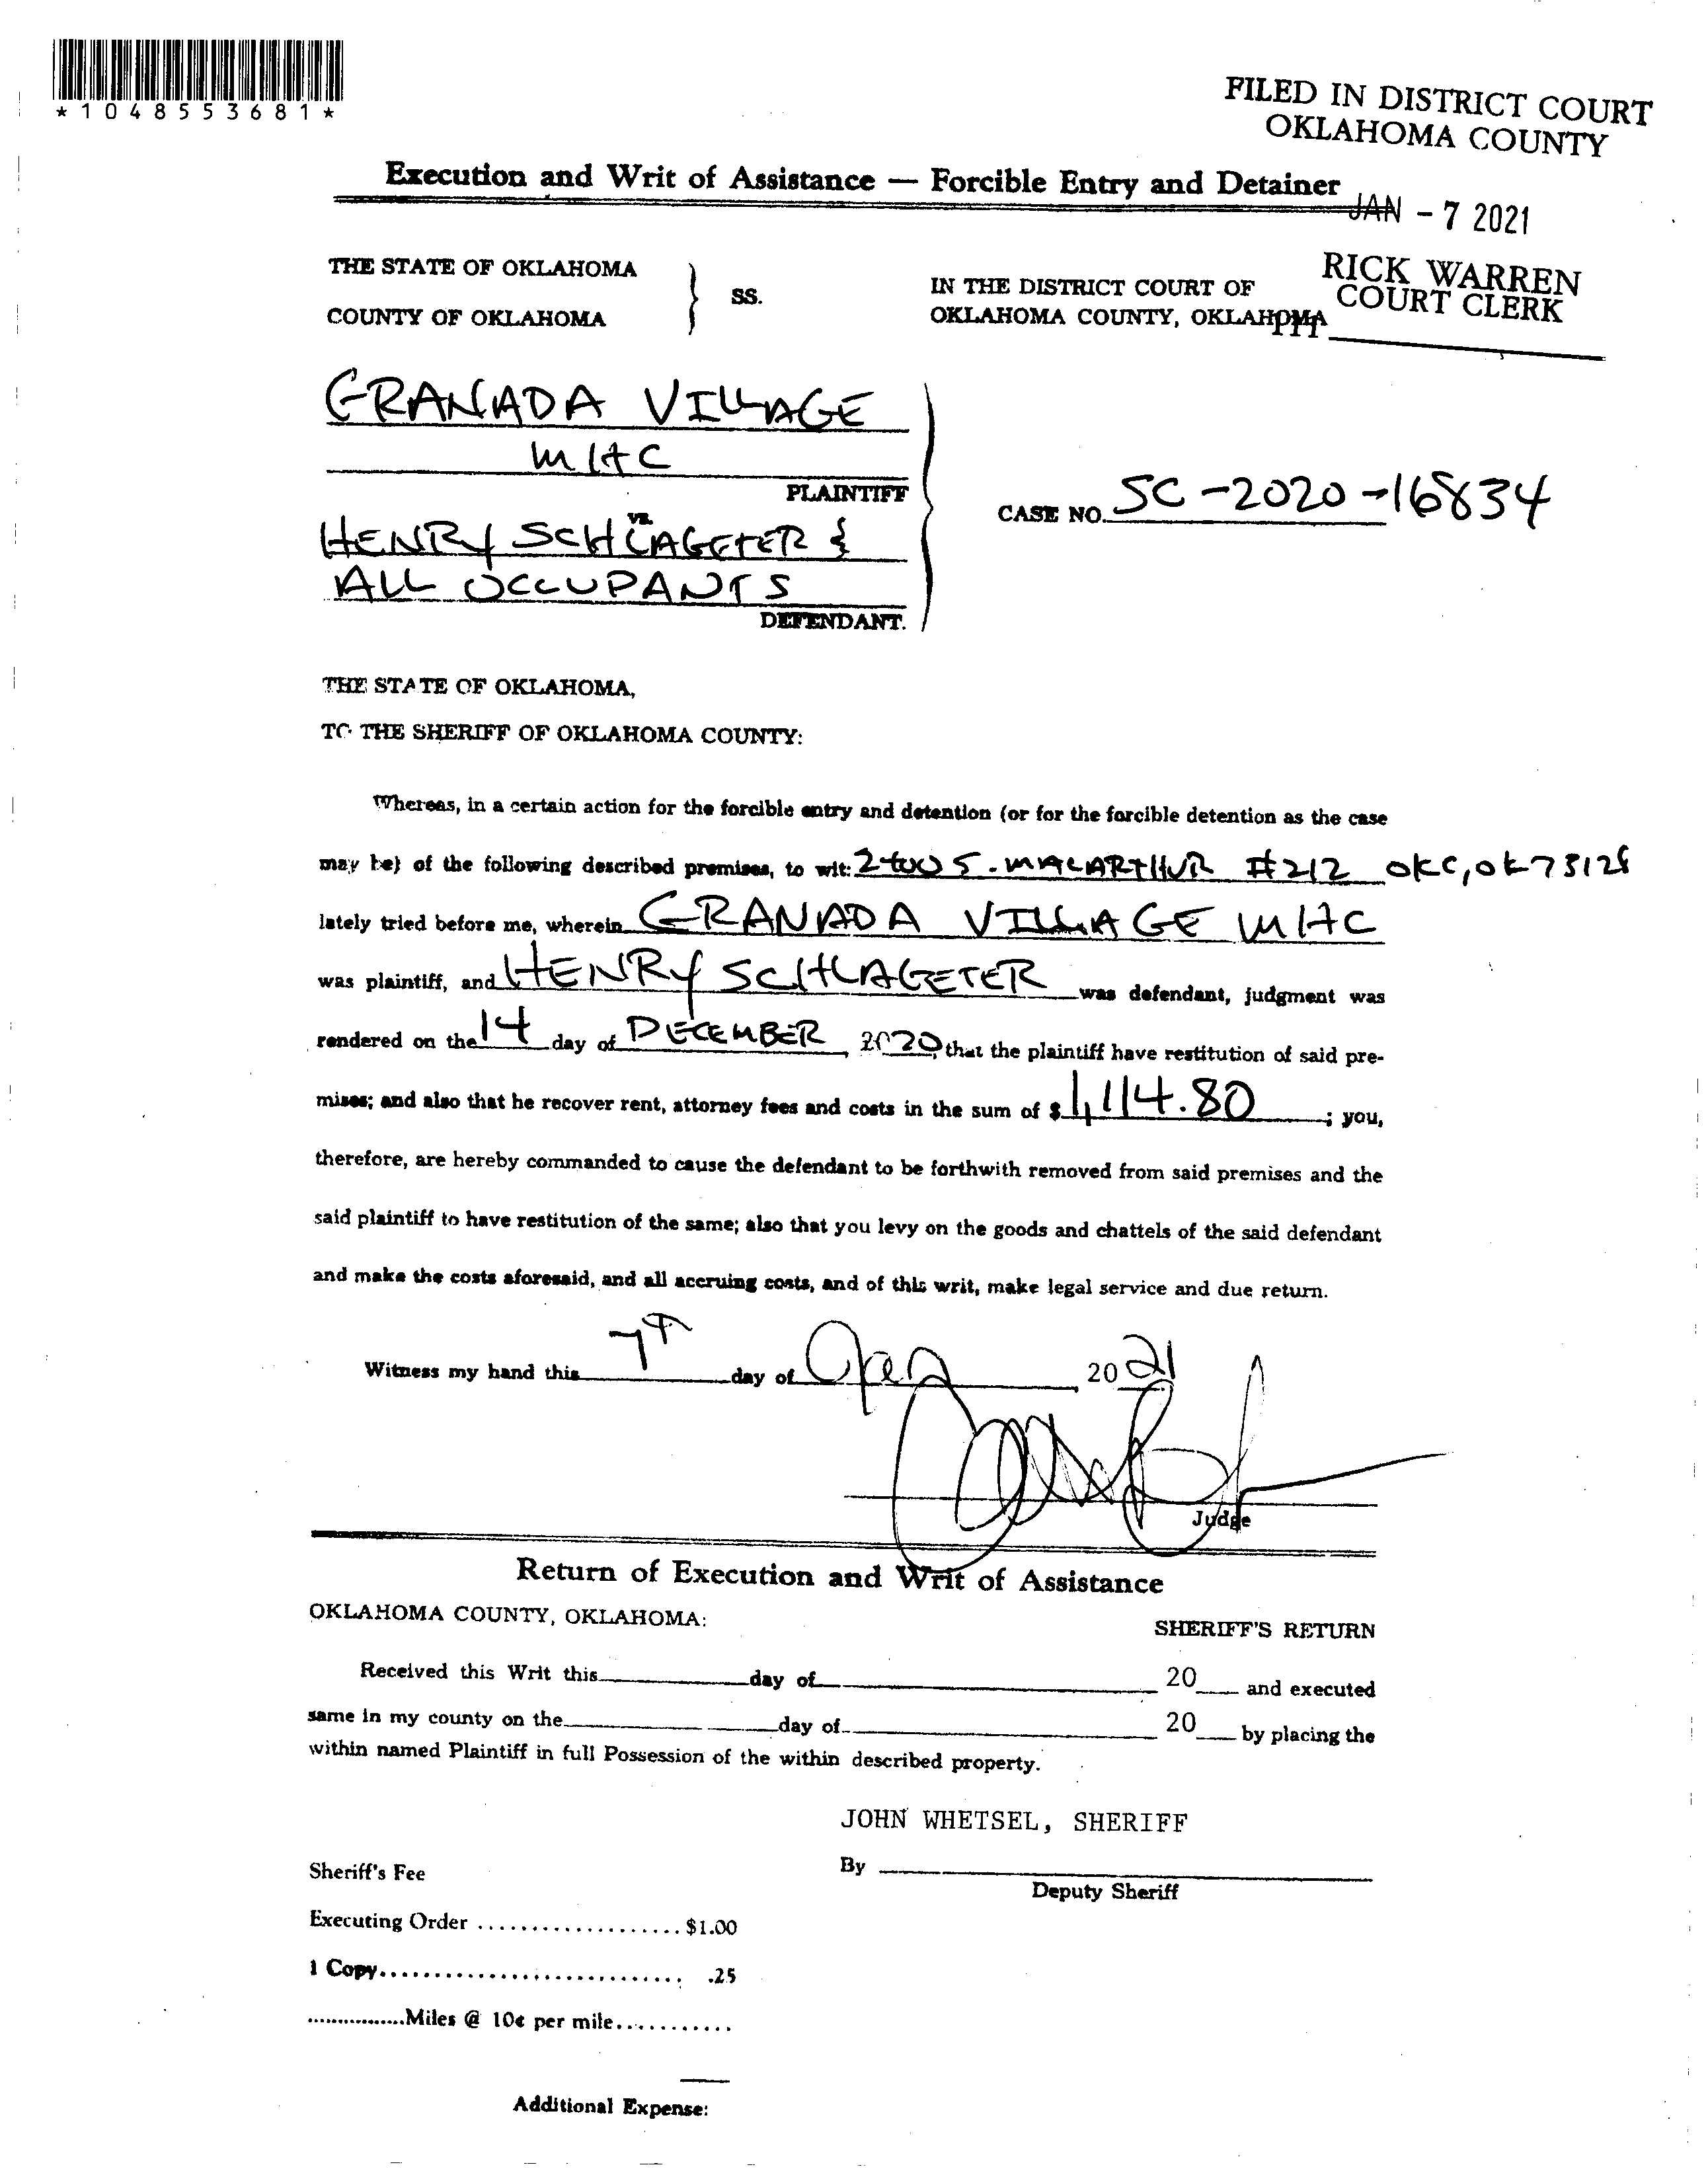 *1048553681*
FILED IN DISTRICT COURT
OKLAHOMA COUNTY
Execution and Writ of Assistance — Forcible Entry and Detainer
JAN - 7 2021
RICK WARREN
COURT CLERK
THE STATE OF OKLAHOMA
COUNTY OF OKLAHOMA
SS.
IN THE DISTRICT COURT OF
OKLAHOMA COUNTY, OKLAHOMA
GRANADA VILLAGE
MHC
PLAINTIFF
vs.
HENRY SCHLAGETER &
ALL OCCUPANTS
DEFENDANT.
CASE NO. SC-2020-16834
THE STATE OF OKLAHOMA,
TO THE SHERIFF OF OKLAHOMA COUNTY:
Whereas, in a certain action for the forcible entry and detention (or for the forcible detention as the case
may be) of the following described premises, to wit: S. MACARTHUR #212 OKC, OK 73128
lately tried before me, wherein GRANADA VILLAGE MHC
was plaintiff, and HENRY SCHLAGETER was defendant, judgment was
rendered on the 14 day of DECEMBER, 2020, that the plaintiff have restitution of said pre-
mises; and also that he recover rent, attorney fees and costs in the sum of $ 1,114.80; you,
therefore, are hereby commanded to cause the defendant to be forthwith removed from said premises and the
said plaintiff to have restitution of the same; also that you levy on the goods and chattels of the said defendant
and make the costs aforesaid, and all accruing costs, and of this writ, make legal service and due return.
Witness my hand this 7th day of Jan, 2021
Judge
Return of Execution and Writ of Assistance
OKLAHOMA COUNTY, OKLAHOMA:
SHERIFF'S RETURN
Received this Writ this____day of____ 20____ and executed
same in my county on the____day of____ 20____ by placing the
within named Plaintiff in full Possession of the within described property.
JOHN WHETSEL, SHERIFF
By ____
Deputy Sheriff
Sheriff's Fee
Executing Order ................... $1.00
1 Copy............................ .25
................Miles @ 10¢ per mile...........
Additional Expense: